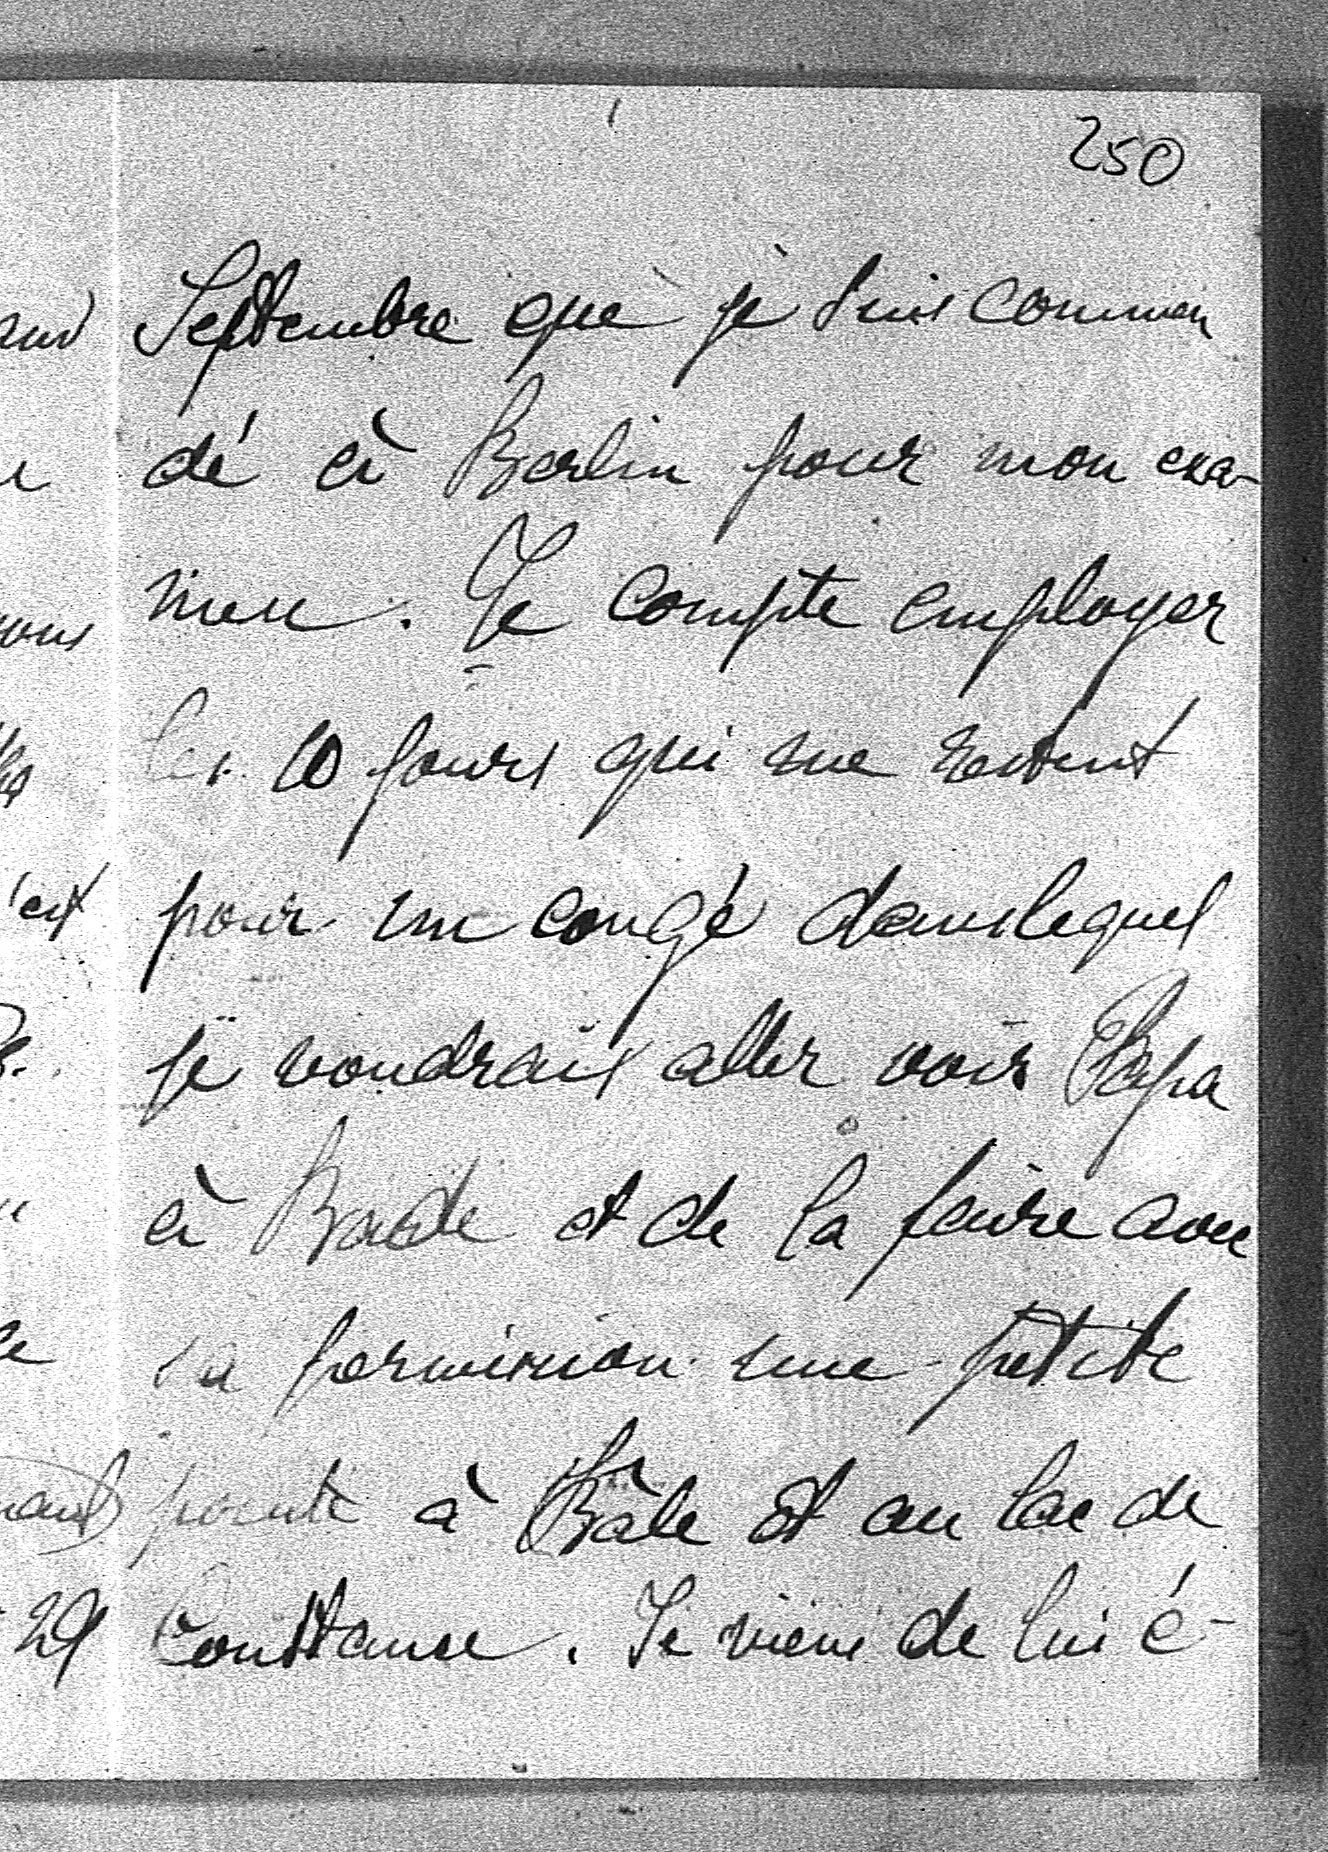 250
Septembre que je suis comman
dé à Berlin pour mon exa-
men. Je compte employer
les 10 jours qui me restent
pour un congé dans lequel
je voudrais aller voir Papa
à Bade et de là faire avec
sa permission une petite
pointe à Bâle et au lac de
29 Constance. Je viens de lui é-